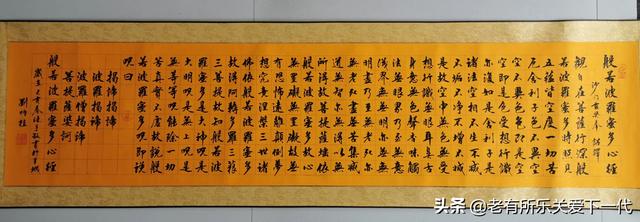 般若波羅蜜多心經
沙門玄奘奉詔譯
觀自在菩薩行深般
若波羅蜜多時照見
五蘊皆空度一切苦
厄舍利子色不異空
空不異色色即是空
空即是色受想行識
亦復如是舍利子是
諸法空相不生不滅
不垢不淨不增不減
是故空中無色無受
想行識無眼耳鼻舌
身意無色聲香味觸
法無眼界乃至無意
識界無無明亦無無
明盡乃至無老死亦
無老死盡無苦集滅
道無智亦無得以無
所得故菩提薩埵依
般若波羅蜜多故心
無罣礙無罣礙故無
有恐怖遠離顛倒夢
想究竟涅槃三世諸
佛依般若波羅蜜多
故得阿耨多羅三藐
三菩提故知般若波
羅蜜多是大神咒是
大明咒是無上咒是
無等等咒能除一切
苦真實不虛故說般
若波羅蜜多咒即說
咒曰
揭諦揭諦
波羅揭諦
波羅僧揭諦
菩提薩婆訶
劉
头条 @老有所乐关爱下一代